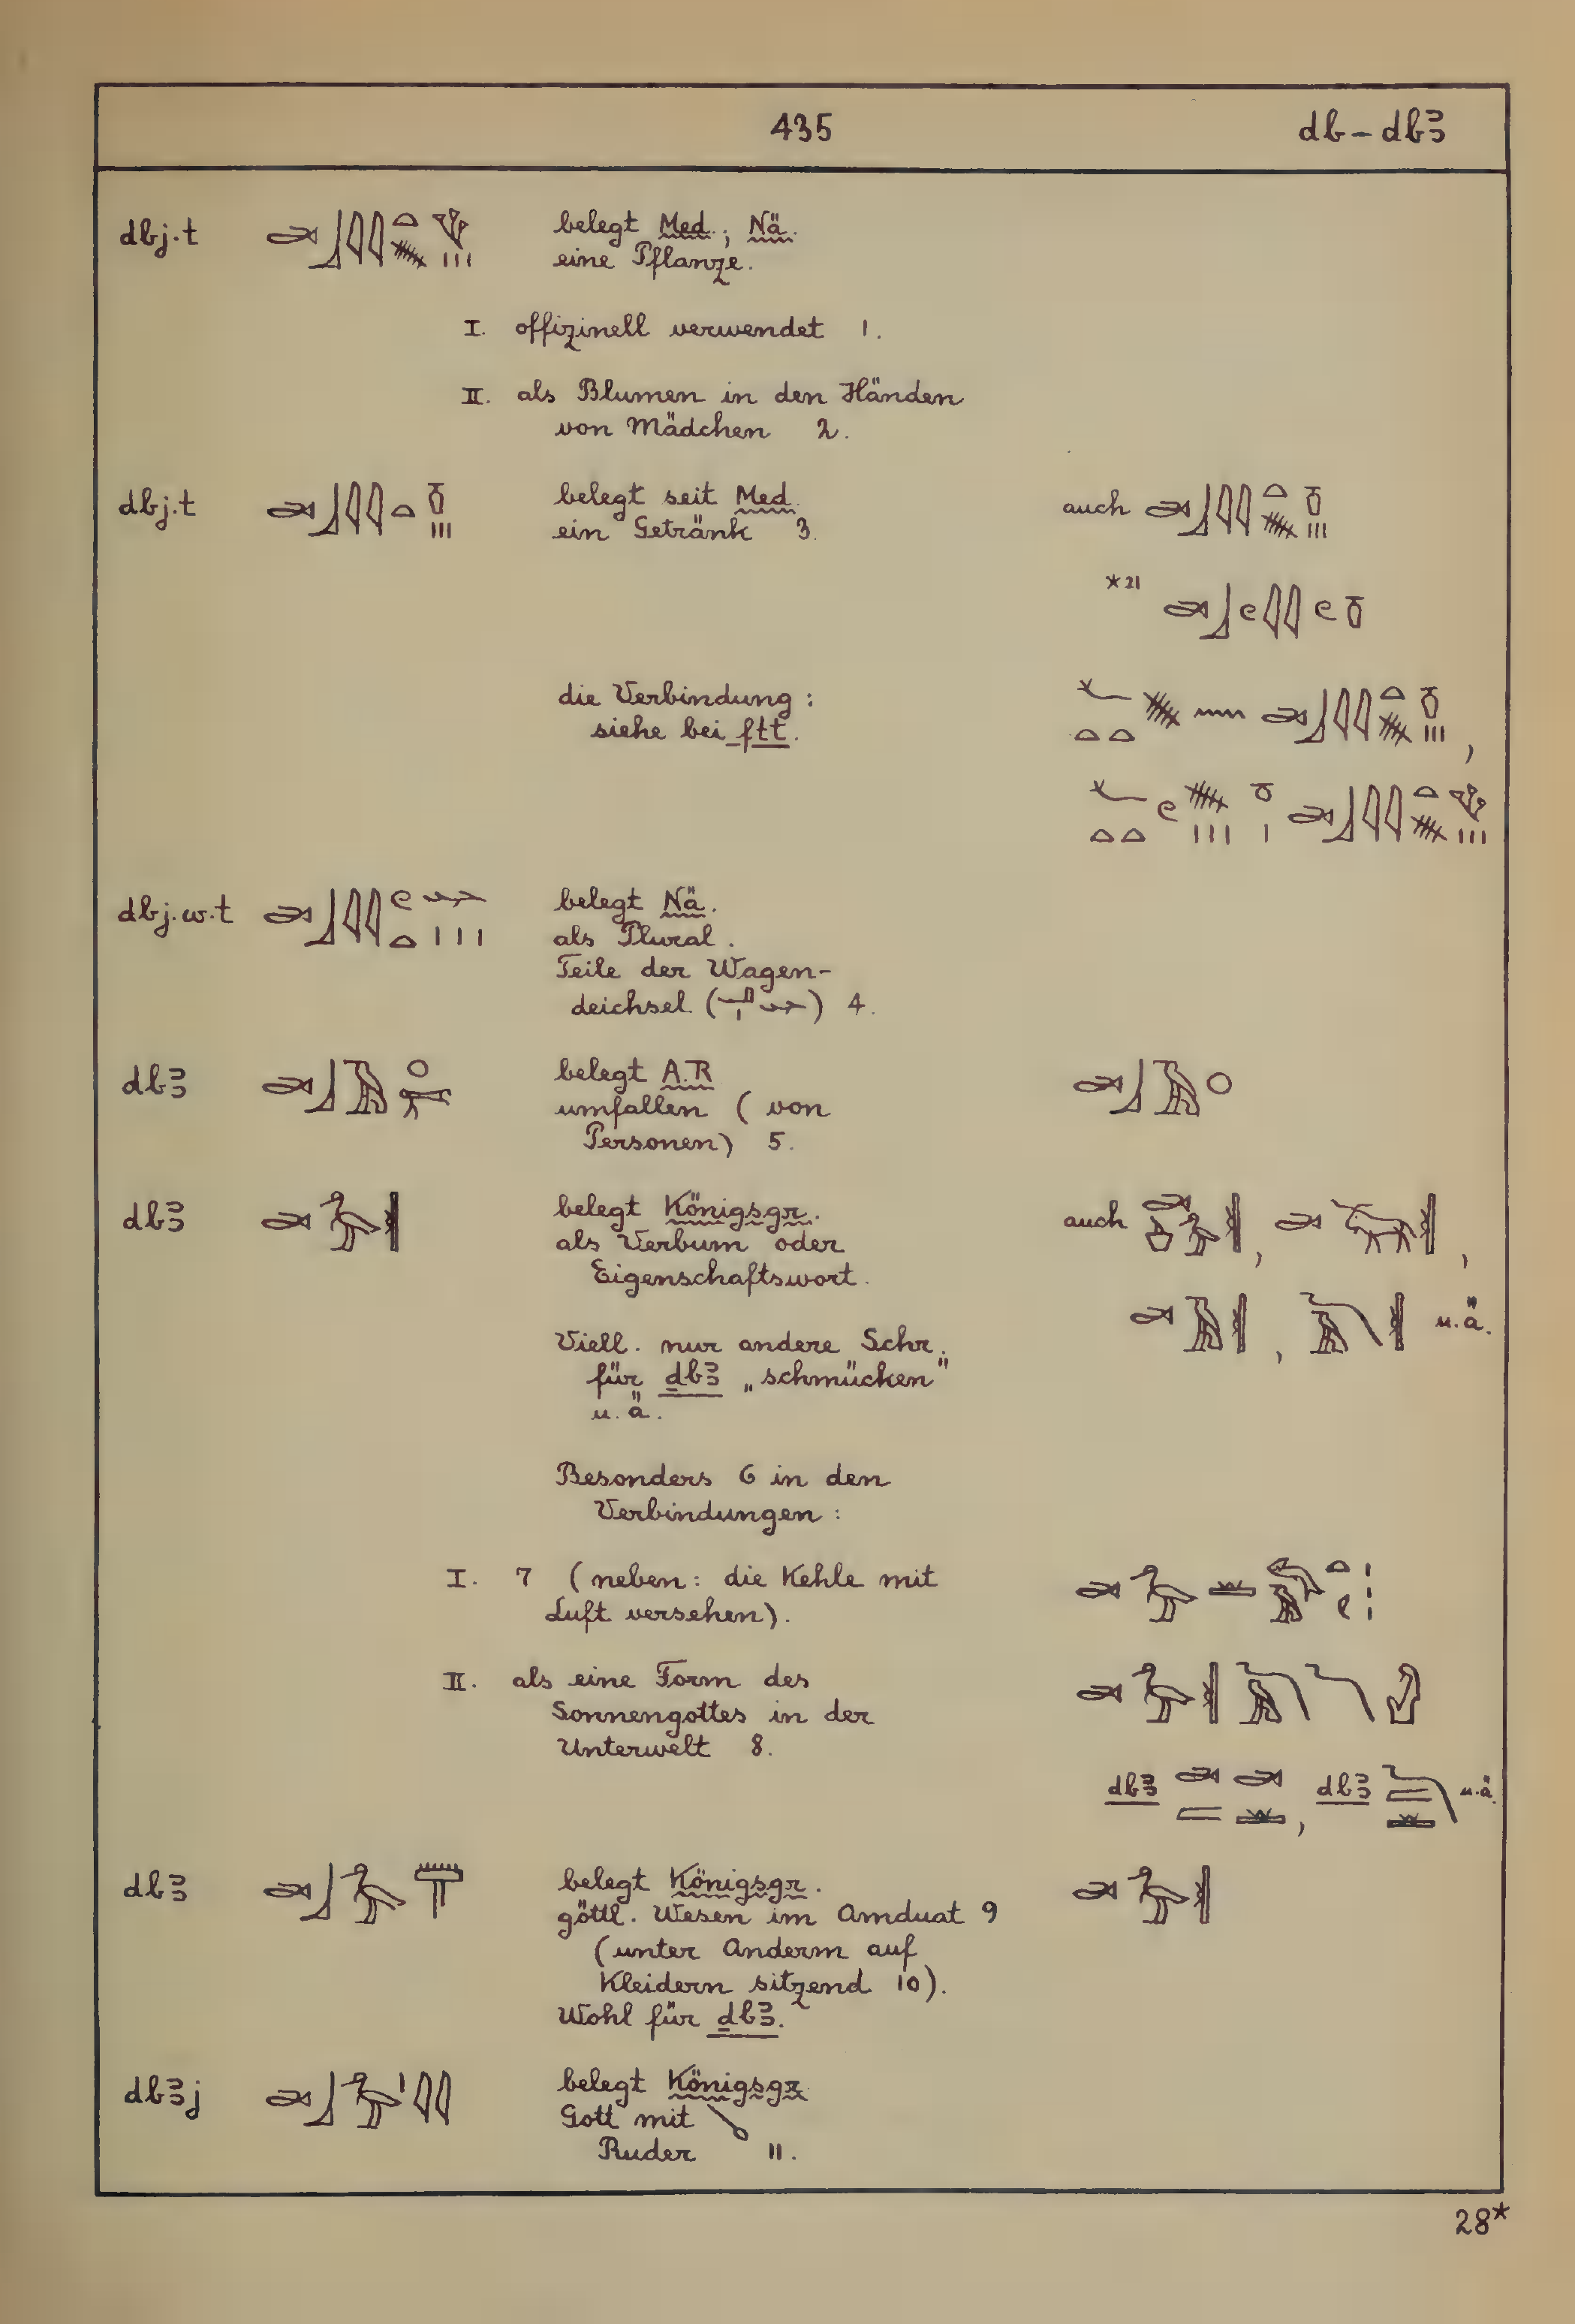 435 db – dbꜣ
dbj.t belegt Med.; Nä.
eine Pflanze.
I. offizinell verwendet 1.
II. als Blumen in den Händen
von Mädchen 2.
dbj.t belegt seit Med. auch
ein Getränk 3.
*21
die Verbindung:
siehe bei ftt. ,
dbj.w.t belegt Nä.
als Plural.
Teile der Wagen-
deichsel ( ) 4.
dbꜣ belegt A.R
umfallen (von
Personen) 5.
dbꜣ belegt Königsgr. auch , ,
als Verbum oder
Eigenschaftswort.
, u.ä.
Viell. nur andere Schr.
für ḏbꜣ „schmücken"
u.ä.
Besonders 6 in den
Verbindungen:
I. 7 (neben: die Kehle mit
Luft versehen).
II. als eine Form des
Sonnengottes in der
Unterwelt 8.
dbꜣ , dbꜣ u.ä.
dbꜣ belegt Königsgr.
göttl. Wesen im Amduat 9
(unter Anderm auf
Kleidern sitzend 10).
Wohl für ḏbꜣ.
dbꜣj belegt Königsgr
Gott mit
Ruder 11.
28*